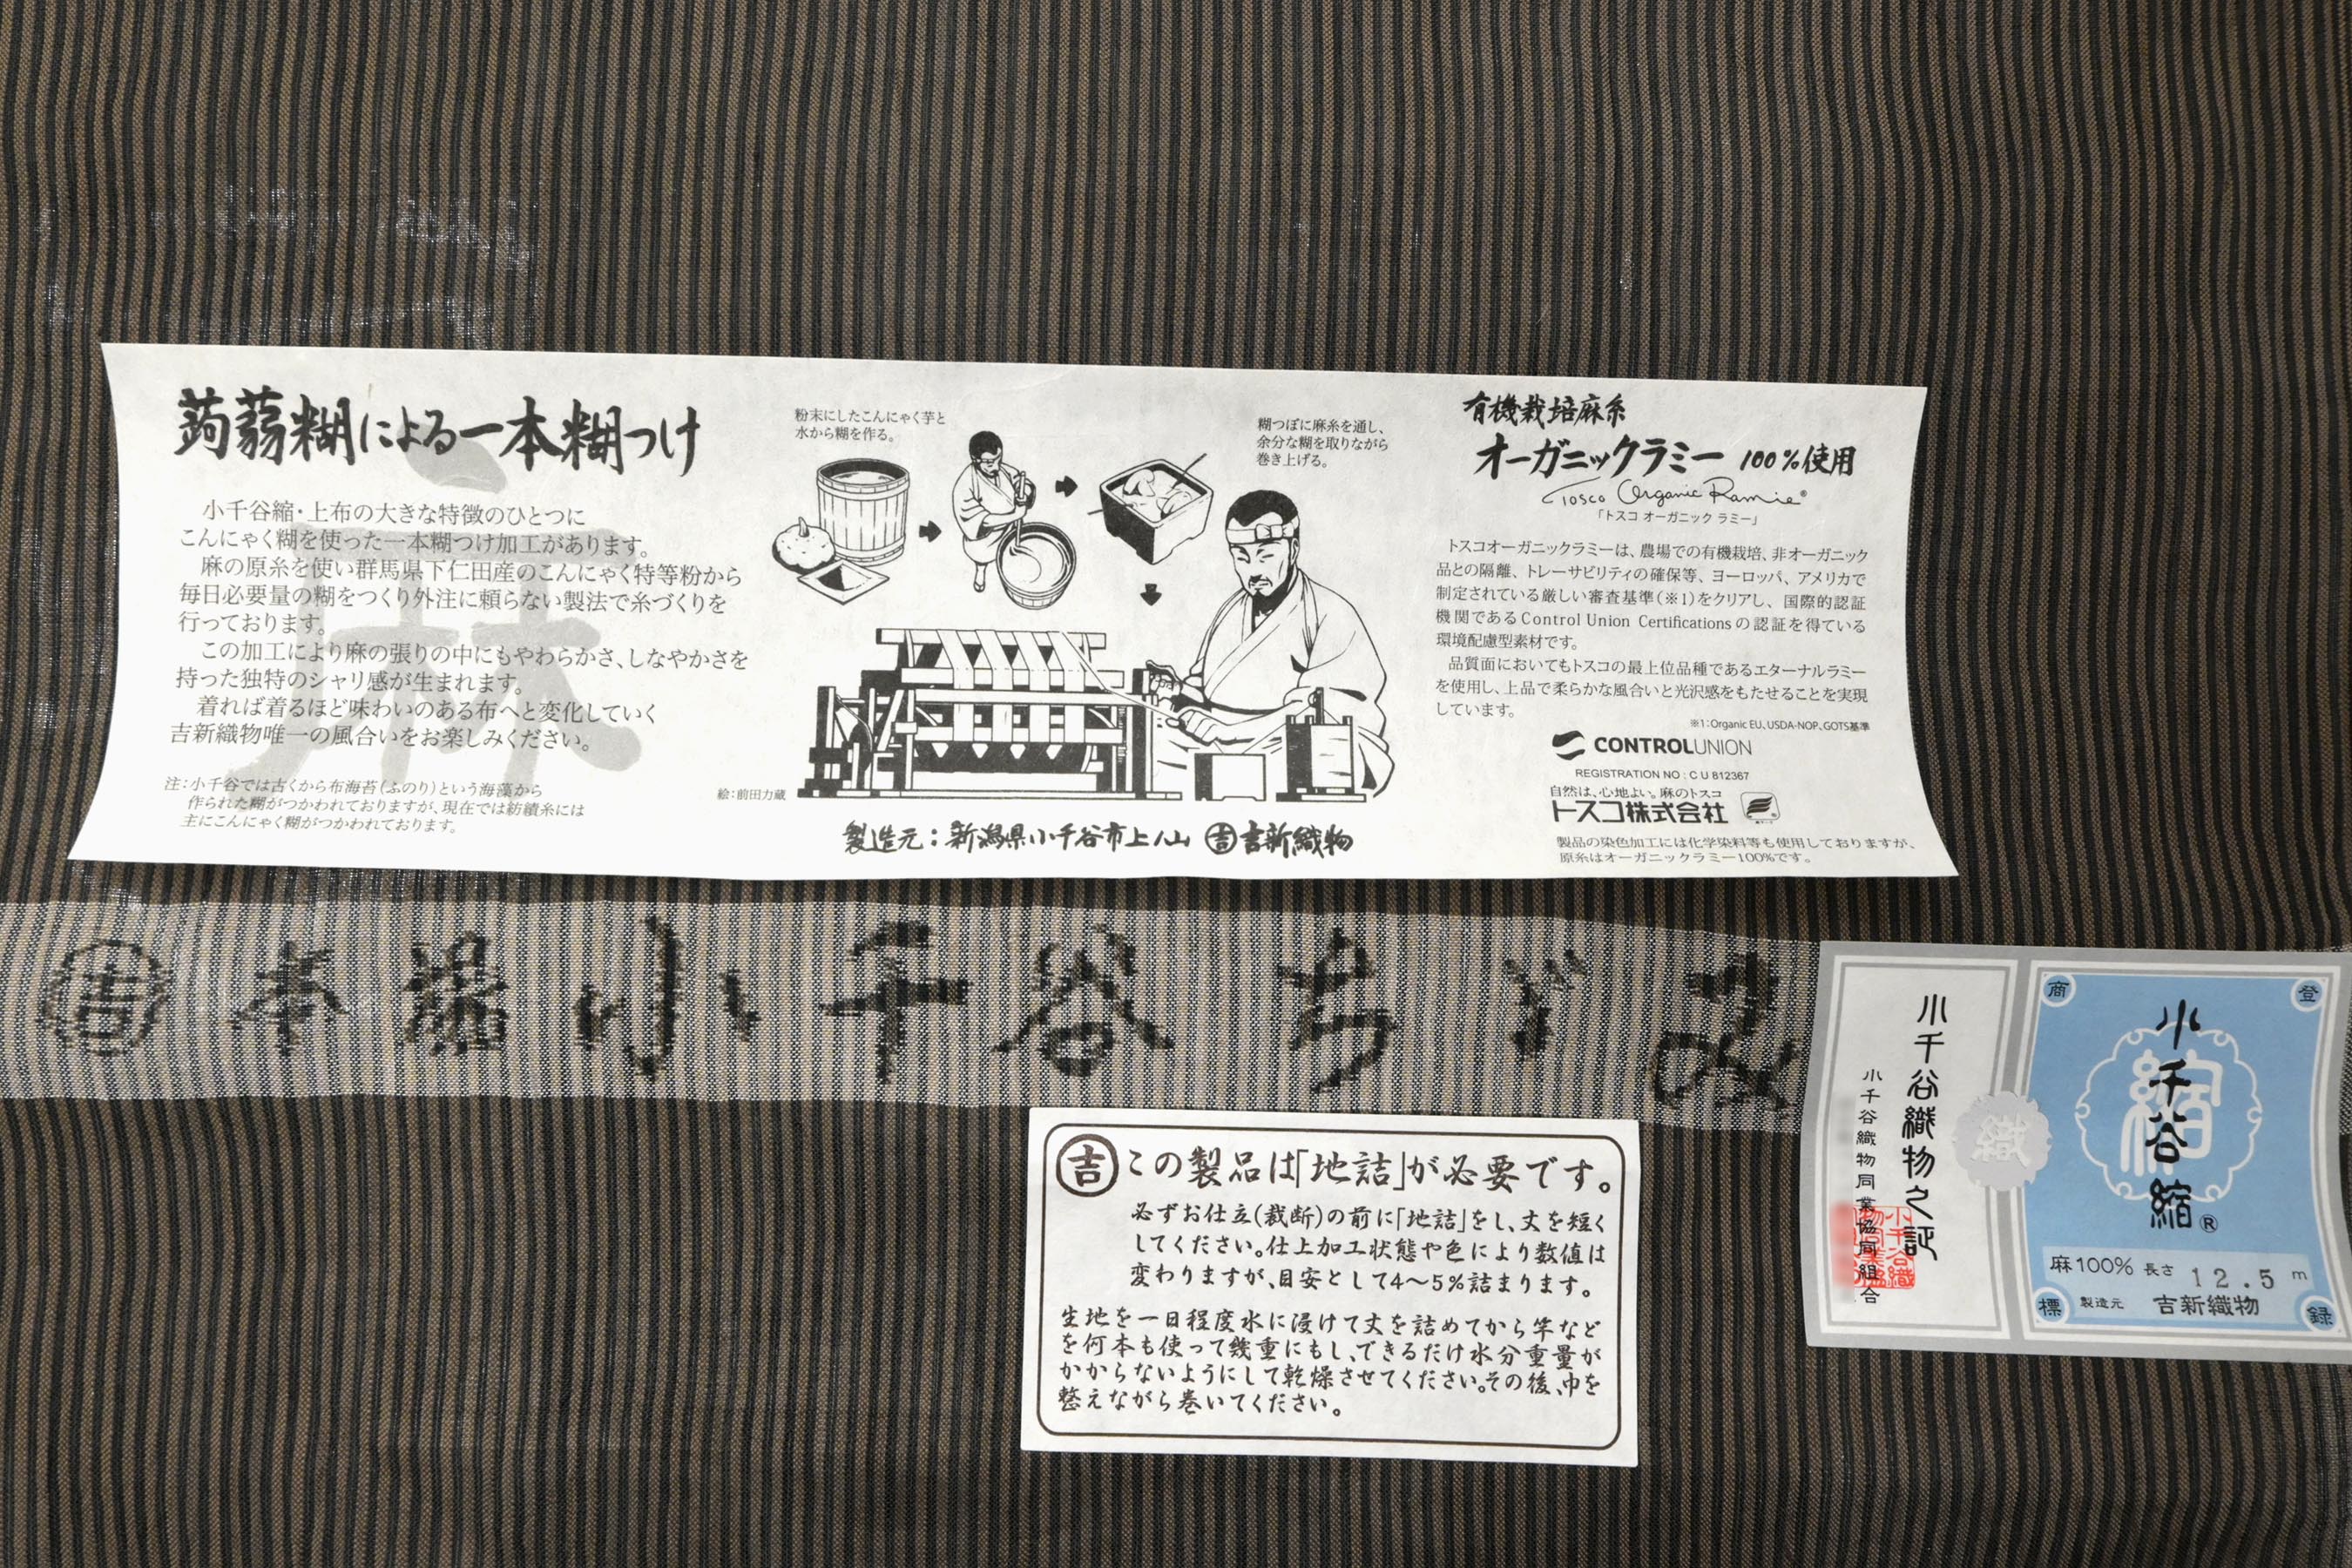 蒟蒻糊による一本糊つけ
小千谷縮・上布の大きな特徴のひとつに
こんにゃく糊を使った一本糊つけ加工があります。
麻の原糸を使い群馬県下仁田産のこんにゃく特等粉から
毎日必要量の糊をつくり外注に頼らない製法で糸づくりを
行っております。
この加工により麻の張りの中にもやわらかさ、しなやかさを
持った独特のシャリ感が生まれます。
着れば着るほど味わいのある布へと変化していく
吉新織物唯一の風合いをお楽しみください。
注:小千谷では古くから布海苔(ふのり)という海藻から
作られた糊がつかわれておりますが、現在では紡績糸には
主にこんにゃく糊がつかわれております。
麻
粉末にしたこんにゃく芋と
水から糊を作る。
糊つぼに麻糸を通し、
余分な糊を取りながら
巻き上げる。
絵:前田力蔵
製造元:新潟県小千谷市上ノ山 ㊂吉新織物
有機栽培麻糸
オーガニックラミー 100%使用
Tosco Organic Ramie®
「トスコ オーガニック ラミー」
トスコオーガニックラミーは、農場での有機栽培、非オーガニック
品との隔離、トレーサビリティの確保等、ヨーロッパ、アメリカで
制定されている厳しい審査基準(※1)をクリアし、国際的認証
機関であるControl Union Certificationsの認証を得ている
環境配慮型素材です。
品質面においてもトスコの最上位品種であるエターナルラミー
を使用し、上品で柔らかな風合いと光沢感をもたせることを実現
しています。
※1:Organic EU、USDA-NOP、GOTS基準
CONTROLUNION
REGISTRATION NO : C U 812367
自然は、心地よい。麻のトスコ
トスコ株式会社
製品の染色加工には化学染料等も使用しておりますが、
原糸はオーガニックラミー100%です。
吉 本場小千谷ちゞみ
吉 この製品は「地詰」が必要です。
必ずお仕立(裁断)の前に「地詰」をし、丈を短く
してください。仕上加工状態や色により数値は
変わりますが、目安として4〜5%詰まります。
生地を一日程度水に浸けて丈を詰めてから竿など
を何本も使って幾重にもし、できるだけ水分重量が
かからないようにして乾燥させてください。その後、巾を
整えながら巻いてください。
小千谷織物之証
小千谷織物同業協同組合
織
登
録
商
標
縮
小千谷縮®
麻100% 長さ 12.5 m
製造元 吉新織物